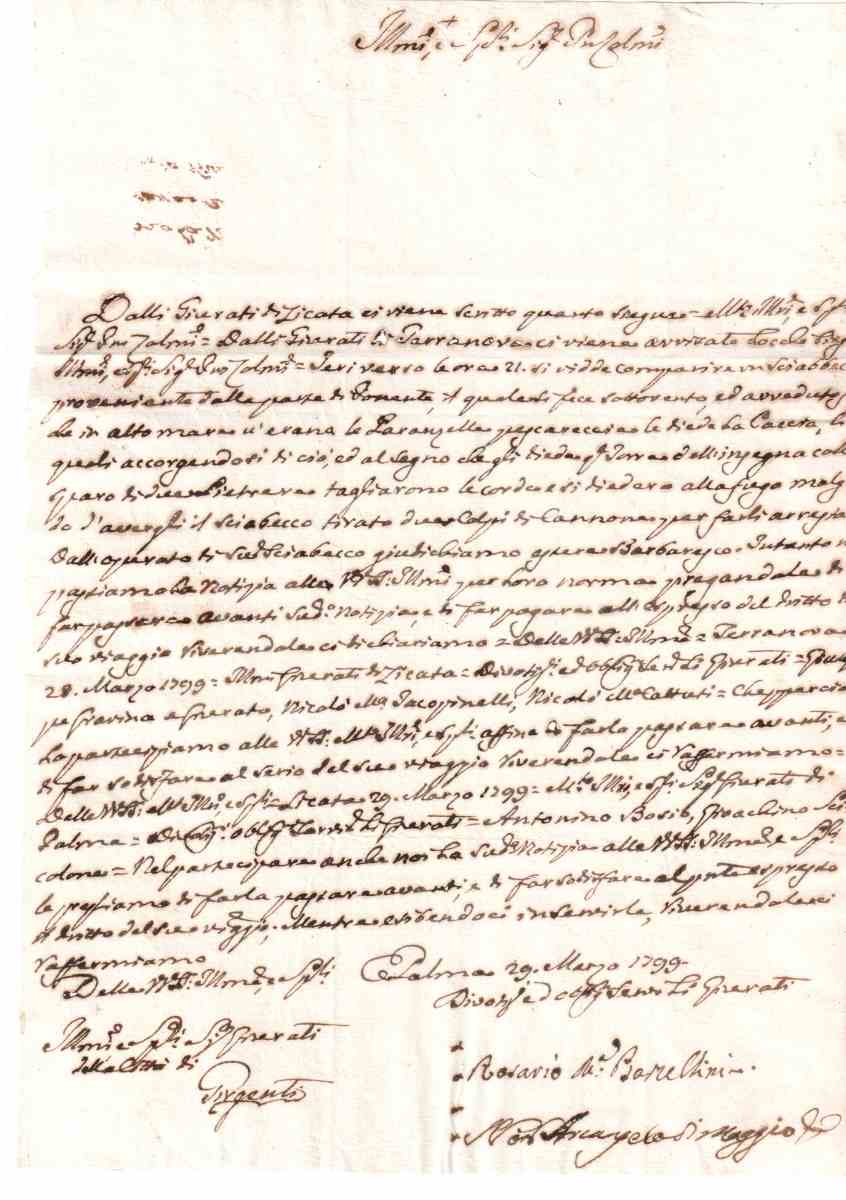 Illmi, e Spti Sigri Pni Colmi
Dalli Giurati di Licata ci viene scritto quanto siegue = Mto Illmi, e Spti
Sigri Pni Colmi = Dalli Giurati di Terranova ci viene avvisato locche siegue
Illmi, e Spti Sigri Pni Colmi = Jeri verso le ore 21. si vidde comparire un Sciabecco
proveniente dalle parte di Ponente, il quale si fece sottovento, ed avvedutosi
che in alto mare v'erano le Paranzelle pescareccie le diede la Caccia, le
quali accorgendosi di ciò, ed al segno che gli diede qta Torre dell'insegna collo
sparo di due Pietrere tagliarono le corde e si diedero alla fuga malgra
do d'avergli il Sciabecco tirato due Colpi di Cannone per farli arrestare
Dall'operato di sudo Sciabecco giudichiamo essere Barbaresco. Intanto ne
passiamo la Notizia alle VV.SS. Illme per loro norma pregandole di
far passare avanti suda Notizia, e di far pagare all'espresso del dritto di
suo viaggio riverendole ci dichiariamo = Delle VV.SS. Illme = Terranova
28. Marzo 1799 = Illmi Giurati di Licata = Divotissi ed obblmi Servri Li Giurati =
pe Gravina e Giurato, Nicolò Ma. Jacopinelli, Nicolò Ma. Cattuti =
La partecipiamo alle VV.SS. Mto Illmi, e Spti affine di farla passare avanti, e
di far sodisfare al serio del suo viaggio riverendole ci raffermiamo =
Delle VV.SS. Mto Illmi, e Spti = Licata 29. Marzo 1799 = Mto Illi, e Spti Sigri Giurati di
Palma = Divmi obblmi Servri Li Giurati = Antonino Bosio, Gioachino
colone = Nel partecipare anche noi la suda Notizia alle VV.SS. Illme, e Spti
le preghiamo di farla passare avanti, e di far sodisfare al pnte espresso
il dritto del suo viaggio, Mentre esibendoci in servirle, riverendole ci
raffermiamo
Delle VV.SS. Illme, e Spti
Palma 29. Marzo 1799.
Divotissi ed obblmi Servri Li Giurati
Illmi e Spti Sigri Giurati
della Città di
Girgenti
Rosario Ma. Barcellini
Nor. Arcangelo Di Maggio